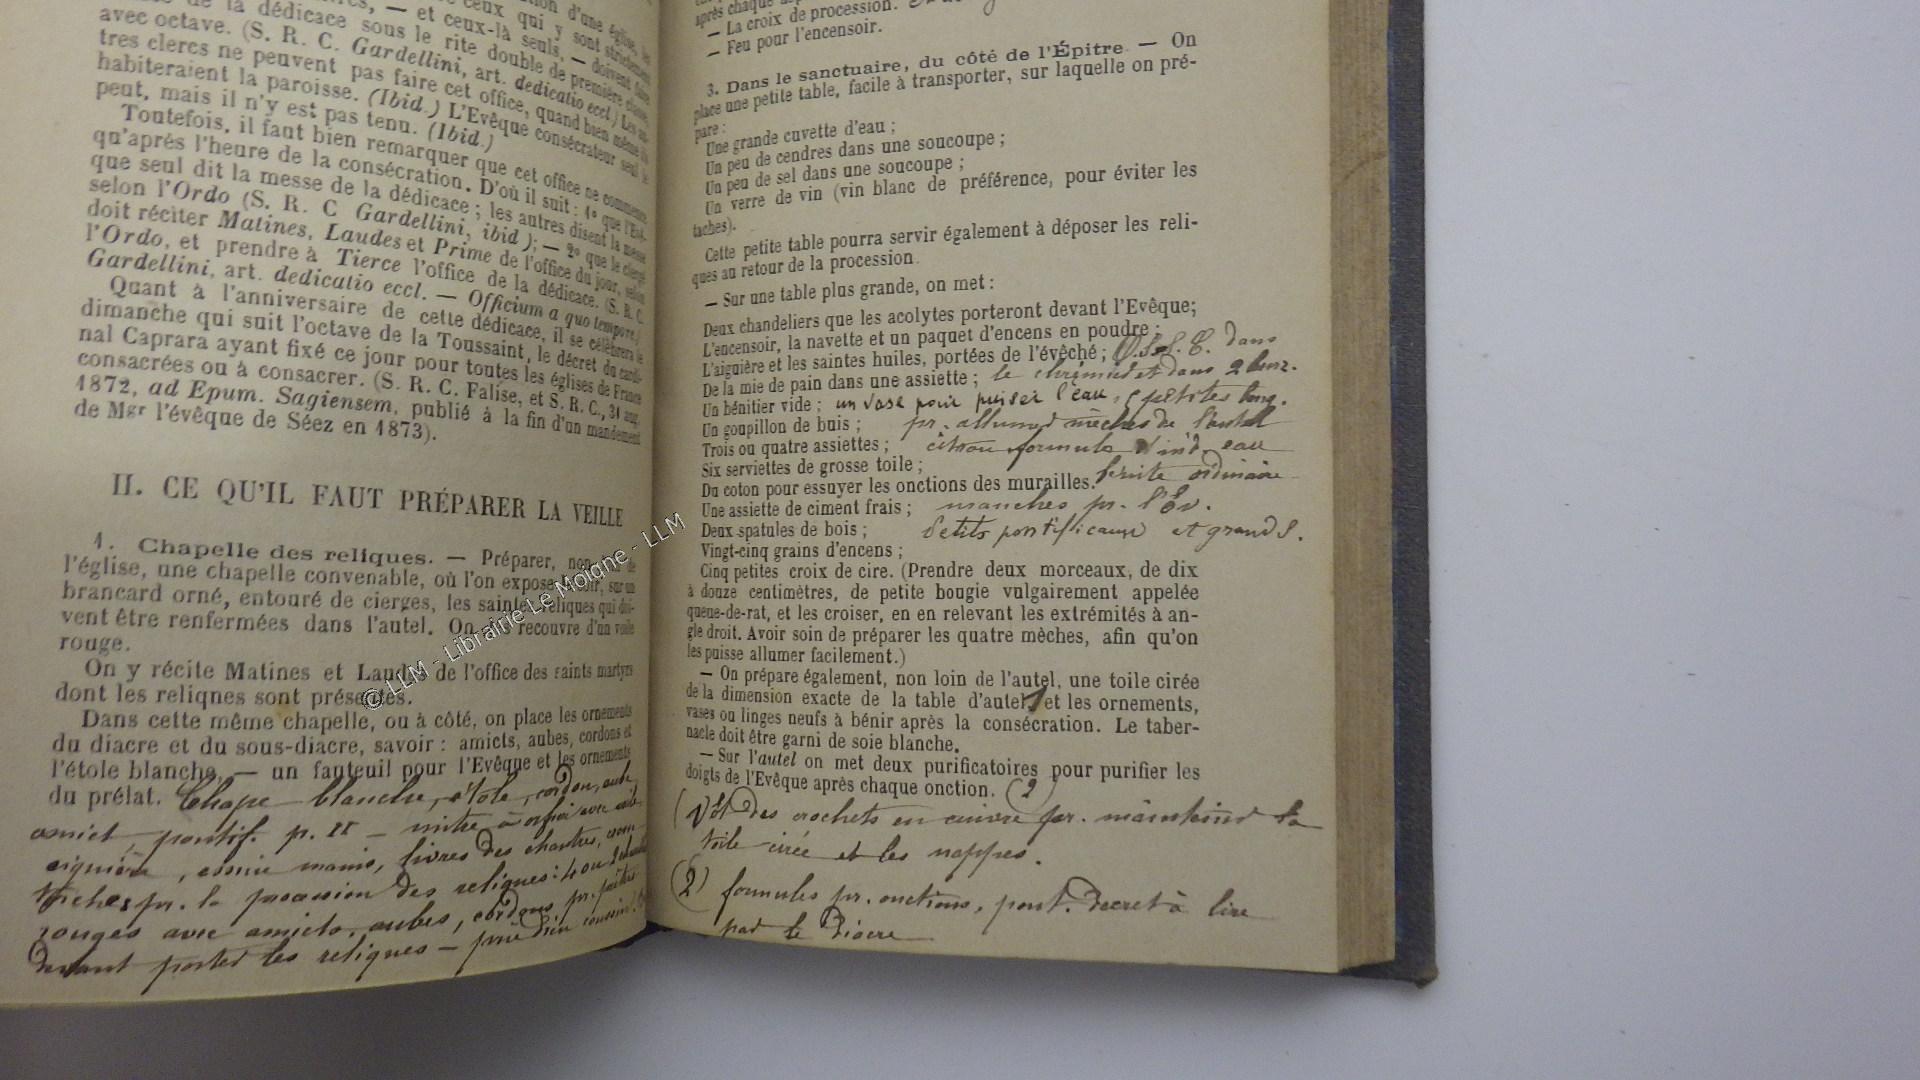 avec octave. (S. R. C. Gardellini, art. dedicatio eccl.) Les au-
tres clercs ne peuvent pas faire cet office, quand bien même ils
habiteraient la paroisse. (Ibid.) L'Evêque consécrateur seul le
peut, mais il n'y est pas tenu. (Ibid.)
Toutefois, il faut bien remarquer que cet office ne commence
qu'après l'heure de la consécration. D'où il suit : 1º que l'Evê-
que seul dit la messe de la dédicace ; les autres disent la messe
selon l'Ordo (S. R. C Gardellini, ibid ); — 2º que le clergé
doit réciter Matines, Laudes et Prime de l'office du jour, selon
l'Ordo, et prendre à Tierce l'office de la dédicace. (S. R. C.
Gardellini, art. dedicatio eccl. — Officium a quo tempore.)
Quant à l'anniversaire de cette dédicace, il se célèbrera le
dimanche qui suit l'octave de la Toussaint, le décret du cardi-
nal Caprara ayant fixé ce jour pour toutes les églises de France
consacrées ou à consacrer. (S. R. C. Falise, et S. R. C., 31 aug.
1872, ad Epum. Sagiensem, publié à la fin d'un mandement
de Mgr l'évêque de Séez en 1873).
II. CE QU'IL FAUT PRÉPARER LA VEILLE
1. Chapelle des reliques. — Préparer, non de
l'église, une chapelle convenable, où l'on expose sur un
brancard orné, entouré de cierges, les saintes reliques qui doi-
vent être renfermées dans l'autel. On recouvre d'un voile
rouge.
On y récite Matines et Laudes de l'office des saints martyrs
dont les reliqnes sont présentes.
Dans cette même chapelle, ou à côté, on place les ornements
du diacre et du sous-diacre, savoir : amicts, aubes, cordons et
l'étole blanche, — un fauteuil pour l'Evêque et les ornements
du prélat. Chape blanche, étole, cordon, aube
amict, pontif. p. II — mitre
aiguière, essuie mains, livres des chantres,
torches pr. la procession des reliques: 4 ou
rouges avec amicts, aubes, cordons, pr. prêtres
devant porter les reliques — prie Dieu coussin
après chaque
— La croix de procession.
— Feu pour l'encensoir.
3. Dans le sanctuaire, du côté de l'Épitre. — On
place une petite table, facile à transporter, sur laquelle on pré-
pare :
Une grande cuvette d'eau ;
Un peu de cendres dans une soucoupe ;
Un peu de sel dans une soucoupe ;
Un verre de vin (vin blanc de préférence, pour éviter les
taches).
Cette petite table pourra servir également à déposer les reli-
ques au retour de la procession.
— Sur une table plus grande, on met :
Deux chandeliers que les acolytes porteront devant l'Evêque;
L'encensoir, la navette et un paquet d'encens en poudre ;
L'aiguière et les saintes huiles, portées de l'évêché ; dans
De la mie de pain dans une assiette ; le chrémier et dans 2
Un bénitier vide ; un vase pour puiser l'eau, petites
Un goupillon de buis ; pr. allumer mèches de l'autel
Trois ou quatre assiettes ; citron formule eau
Six serviettes de grosse toile ;
Du coton pour essuyer les onctions des murailles. bénite ordinaire
Une assiette de ciment frais ; manches pr. l'Ev.
Deux spatules de bois ; Petits pontificaux et grands.
Vingt-cinq grains d'encens ;
Cinq petites croix de cire. (Prendre deux morceaux, de dix
à douze centimètres, de petite bougie vulgairement appelée
queue-de-rat, et les croiser, en en relevant les extrémités à an-
gle droit. Avoir soin de préparer les quatre mèches, afin qu'on
les puisse allumer facilement.)
— On prépare également, non loin de l'autel, une toile cirée
de la dimension exacte de la table d'autel, 1 et les ornements,
vases ou linges neufs à bénir après la consécration. Le taber-
nacle doit être garni de soie blanche.
— Sur l'autel on met deux purificatoires pour purifier les
doigts de l'Evêque après chaque onction. (2)
des crochets en cuivre pr. maintenir la
toile cirée et les nappes.
(2) formules pr. onctions, pont. Decret à lire
par le Diacre
© LLM - Librairie Le Moigne - LLM